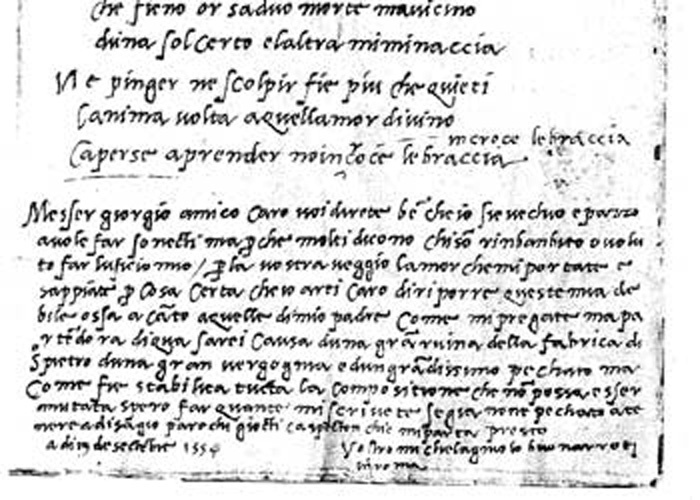 che fieno or saduo morte mauicino
duna sol Certo elaltra miminaccia
Ne pinger ne scolpir fie piu che quieti
lanima uolta aquellamor diuino
in croce le braccia
Caperse aprender noin croce le braccia
Messer giorgio amico Caro uoi direte be cheio sie uechio e pazo
auole far sonecti ma p̱che molti dicono chiso rinbanbito o uolu
to far luficio mio / p̱ la uostra ueggio lamor chemi portate e
sappiate p̱ Cosa Certa cheio arei Caro diriporre queste mia de
bile ossa a cāto aquelle dimio padre Come mi pregate ma pa
rtēdo ra diqua sarei Causa duna grā ruina della fabrica di
S pietro duna gran uergognia e dun grādissimo pechato ma
Come fie stabilita tucta la Compositione che nō possa esser
mutata spero far quante mi scriuete se gia none pechato a te
nere a disagio parechi giocti caspecton che mi parta presto
a di 19 de sectebre 1554
Vostro michelagniolo buonarroti
in roma